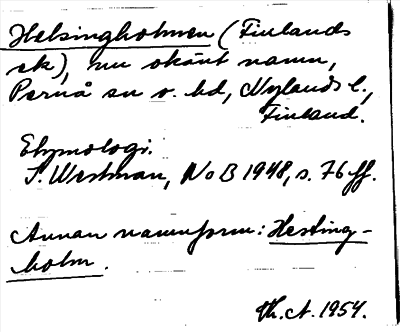 Helsingholmen (Finlands
sk), nu okänt namn,
Pernå sn o. hd, Nylands l.,
Finland.
Etymologi.
S. Westman, NoB 1948, s. 76 ff.
Annan namnform: Hesting-
holm.
Th. A. 1954.